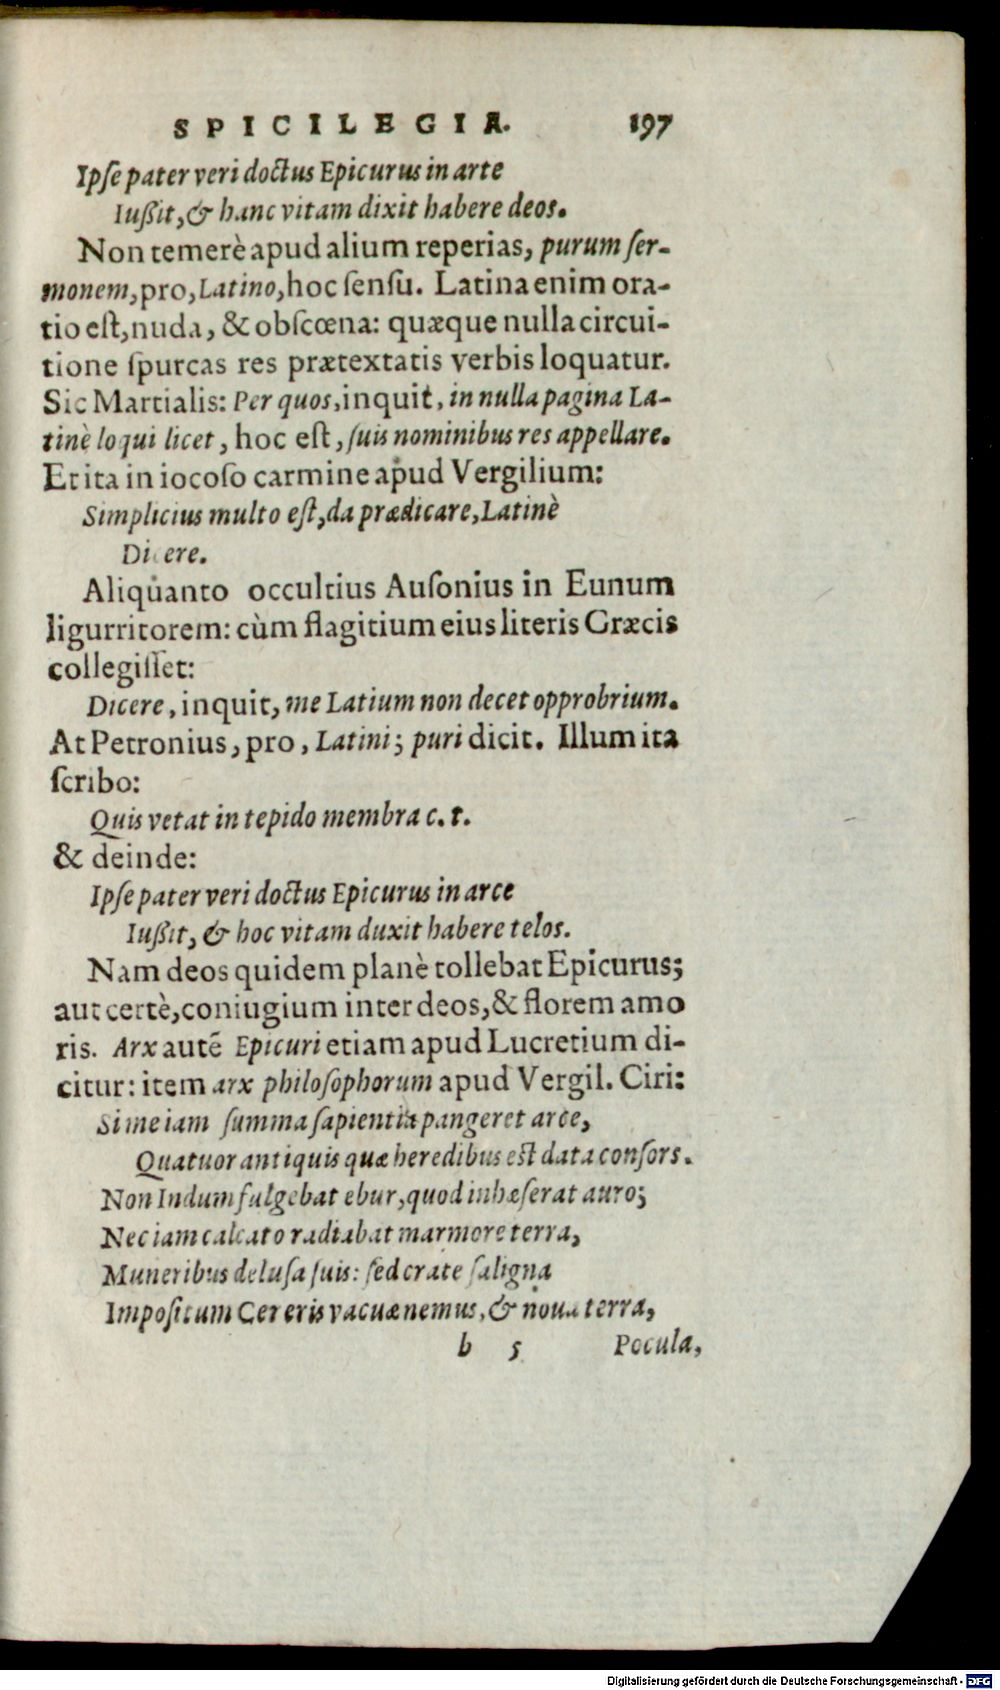 SPICILEGIA. 197
Ipſe pater veri doctus Epicurus in arte
Iußit, & hanc vitam dixit habere deos.
Non temerè apud alium reperias, purum ſer-
monem, pro, Latino, hoc ſenſu. Latina enim ora-
tio eſt, nuda, & obſcœna: quæque nulla circui-
tione ſpurcas res prætextatis verbis loquatur.
Sic Martialis: Per quos, inquit, in nulla pagina La-
tinè loqui licet, hoc eſt, ſuis nominibus res appellare.
Et ita in iocoſo carmine apud Vergilium:
Simplicius multo eſt, da prædicare, Latinè
Dicere.
Aliquanto occultius Auſonius in Eunum
ligurritorem: cùm flagitium eius literis Græcis
collegiſſet:
Dicere, inquit, me Latium non decet opprobrium.
At Petronius, pro, Latini; puri dicit. Illum ita
ſcribo:
Quis vetat in tepido membra c. t.
& deinde:
Ipſe pater veri doctus Epicurus in arce
Iußit, & hoc vitam duxit habere telos.
Nam deos quidem planè tollebat Epicurus;
aut certè, coniugium inter deos, & florem amo
ris. Arx autē Epicuri etiam apud Lucretium di-
citur: item arx philoſophorum apud Vergil. Ciri:
Si me iam ſumma ſapientia pangeret arce,
Quatuor antiquis quæ heredibus eſt data conſors.
Non Indum fulgebat ebur, quod inhæſerat auro;
Nec iam calcato radiabat marmore terra,
Muneribus deluſa ſuis: ſed crate ſaligna
Impoſitum Cereris vacuæ nemus, & noua terra,
b 5 Pocula,
Digitalisierung gefördert durch die Deutsche Forschungsgemeinschaft - DFG